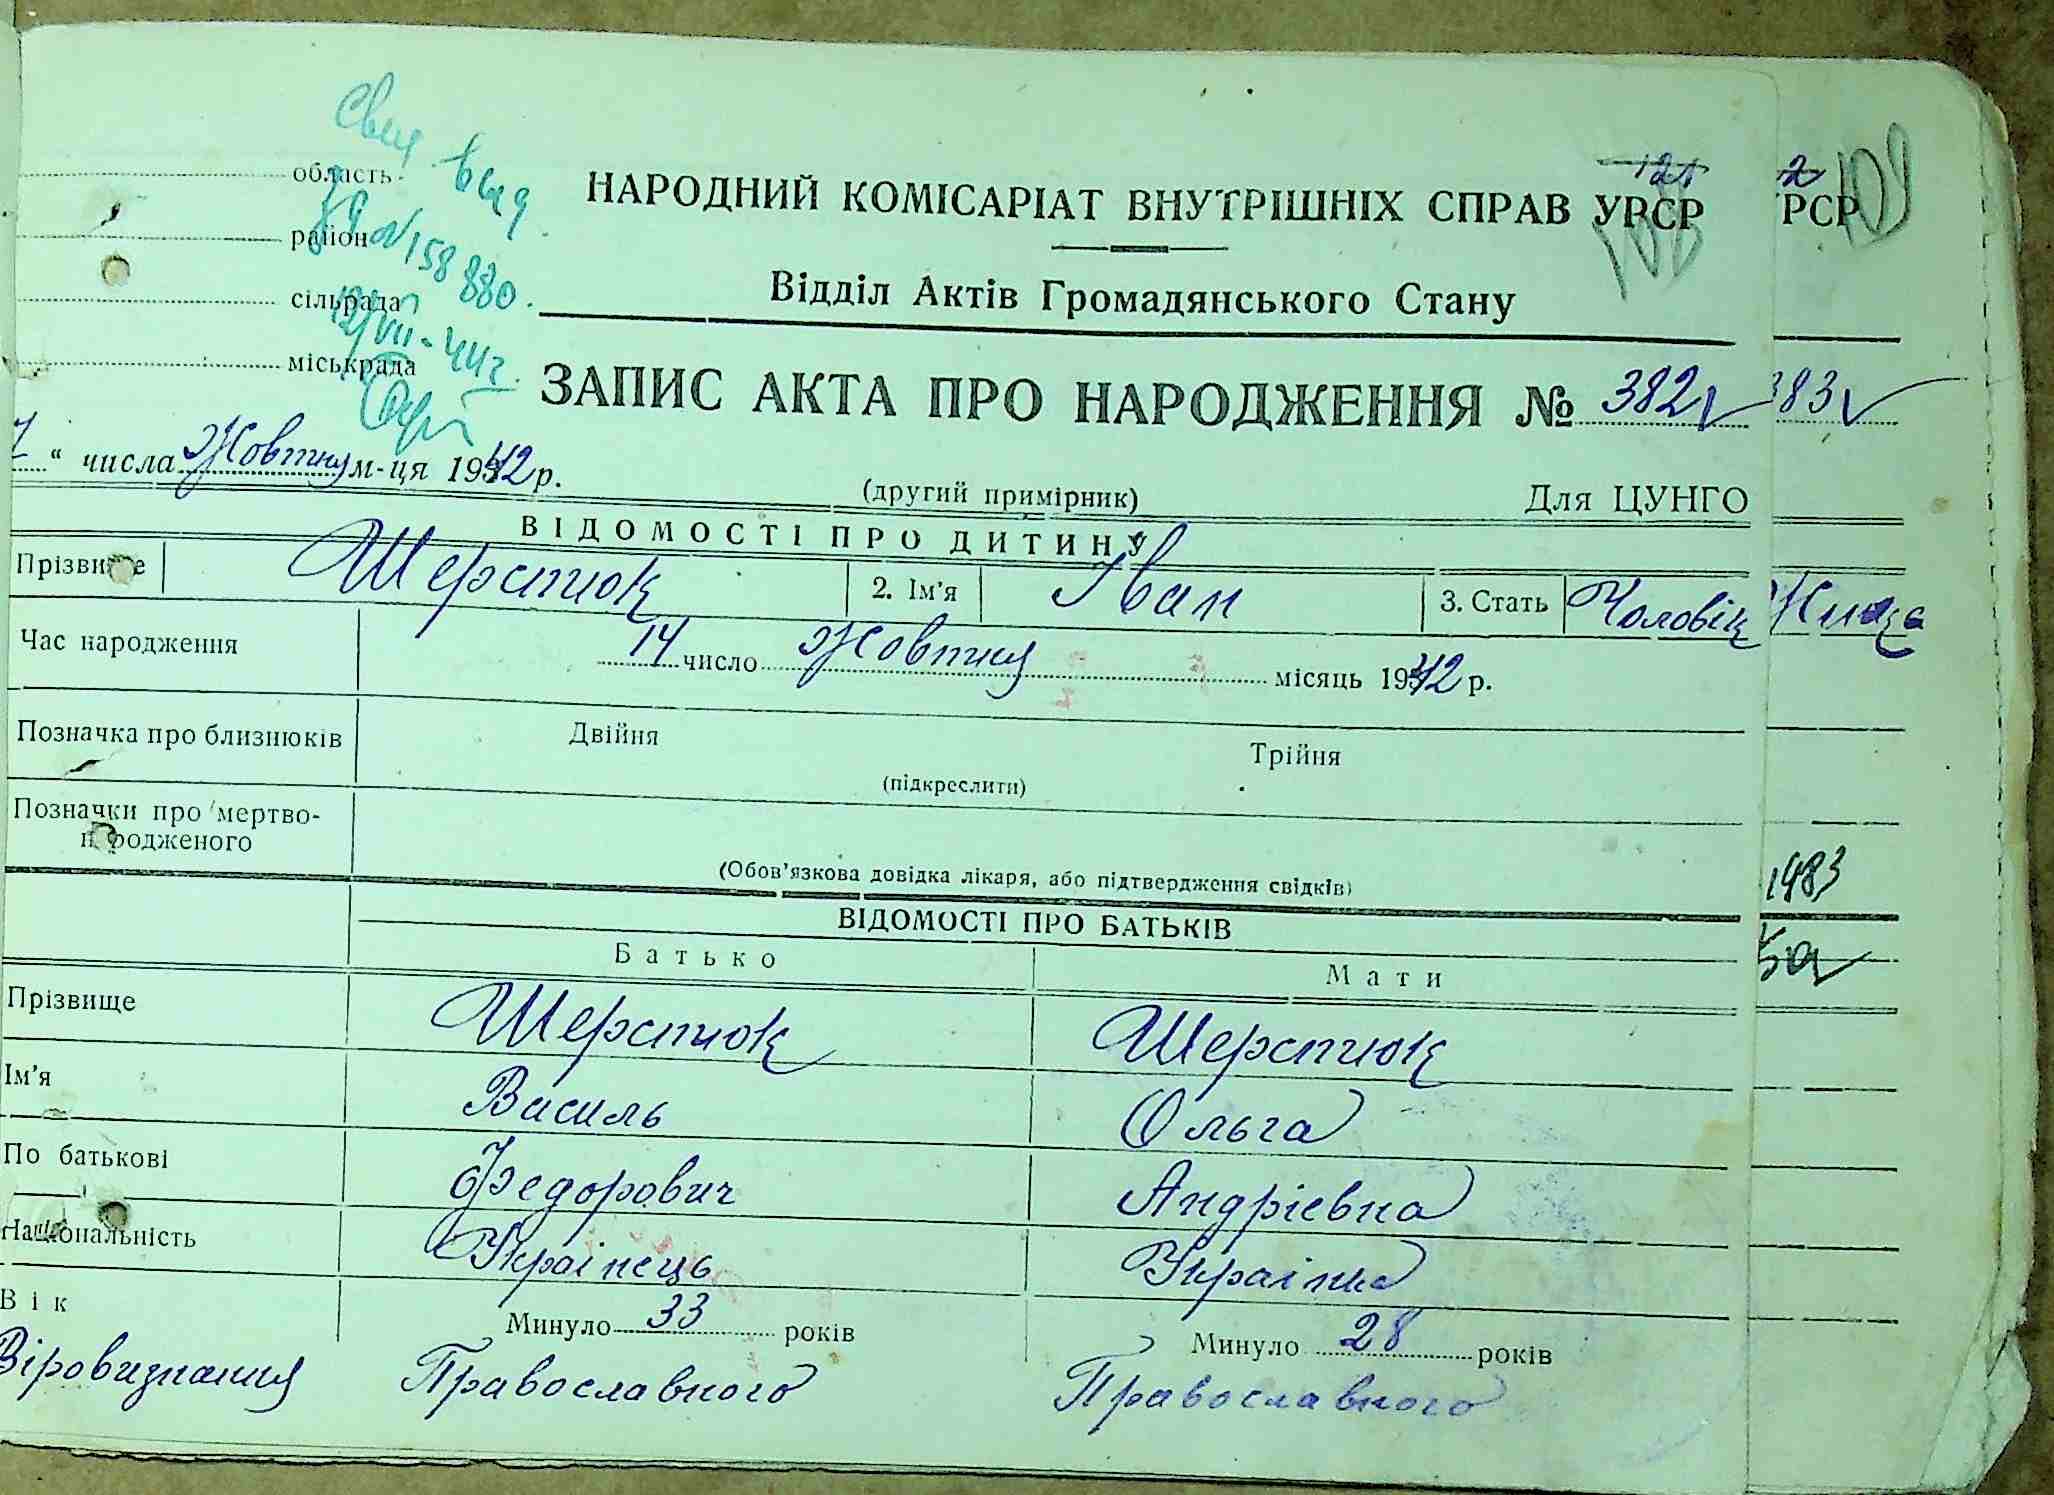 Свид. вид.
область
ЯЯ № 158880.
район
сільрада
міськрада
/VII-44г.
НАРОДНИЙ КОМІСАРІАТ ВНУТРІШНІХ СПРАВ УРСР
РСР
Відділ Актів Громадянського Стану
ЗАПИС АКТА ПРО НАРОДЖЕННЯ № 382 383
" числа Жовтня м-ця 1942 р.
(другий примірник)
Для ЦУНГО
ВІДОМОСТІ ПРО ДИТИНУ
Прізвище Шерстюк 2. Ім'я Іван 3. Стать Чоловік
Час народження 14 число Жовтня місяць 1942 р.
Позначка про близнюків Двійня Трійня
(підкреслити)
Позначки про мертво-
народженого
(Обов'язкова довідка лікаря, або підтвердження свідків)
1483
ВІДОМОСТІ ПРО БАТЬКІВ
Батько Мати
Прізвище Шерстюк Шерстюк
Ім'я Василь Ольга
По батькові Федорович Андріевна
Національність Украінець Украінка
Вік Минуло 33 років Минуло 28 років
Віровизнання Православного Православного